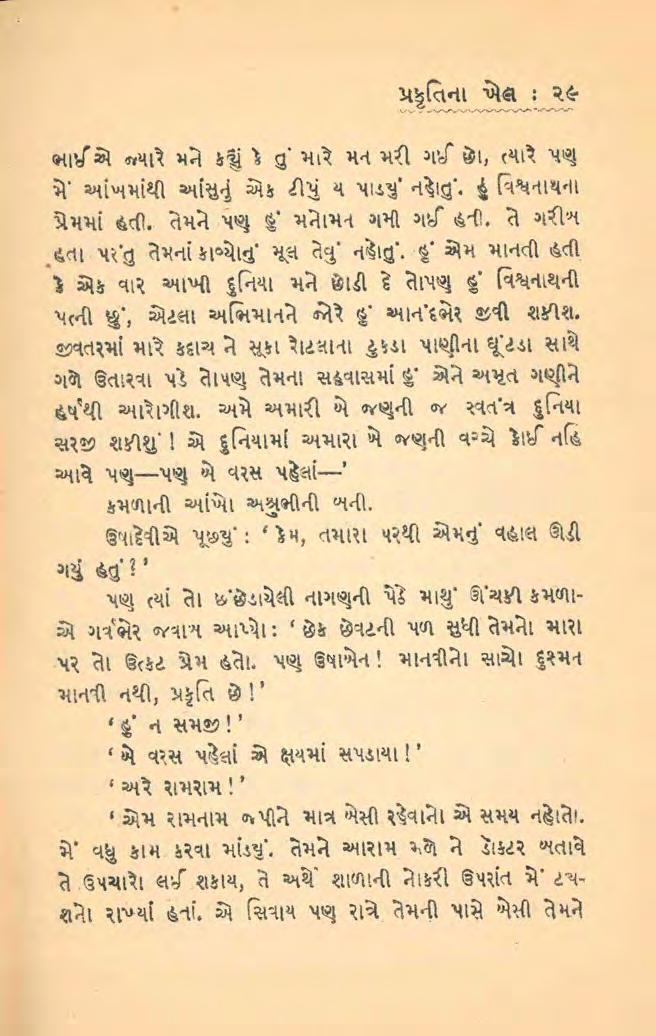 પ્રકૃતિના ખેલ : ૨૯
ભાઈએ જ્યારે મને કહ્યું કે તું મારે મન મરી ગઈ છો, ત્યારે પણ
મેં આંખમાંથી આંસુનું એક ટીપું ય પાડ્યું નહોતું. હું વિશ્વનાથના
પ્રેમમાં હતી. તેમને પણ હું મનોમન ગમી ગઈ હતી. તે ગરીબ
હતા પરંતુ તેમનાં કાવ્યોનું મૂલ તેવું નહોતું. હું એમ માનતી હતી
કે એક વાર આખી દુનિયા મને છોડી દે તોપણ હું વિશ્વનાથની
પત્ની છું, એટલા અભિમાનને જોરે હું આનંદભેર જીવી શકીશ.
જીવતરમાં મારે કદાચ ને સૂકા રોટલાના ટુકડા પાણીના ઘૂંટડા સાથે
ગળે ઉતારવા પડે તોપણ તેમના સહવાસમાં હું એને અમૃત ગણીને
હર્ષથી આરોગીશ. અમે અમારી બે જણની જ સ્વતંત્ર દુનિયા
સરજી શકીશું ! એ દુનિયામાં અમારા બે જણની વચ્ચે કોઈ નહિ
આવે પણ—પણ બે વરસ પહેલાં—'
કમળાની આંખો અશ્રુભીની બની.
ઉષાદેવીએ પૂછ્યું : ‘ કેમ, તમારા પરથી એમનું વહાલ ઊડી
ગયું હતું ? '
પણ ત્યાં તો છંછેડાયેલી નાગણની પેઠે માથું ઊંચકી કમળા-
એ ગર્વભેર જવાબ આપ્યો : ‘ છેક છેવટની પળ સુધી તેમનો મારા
પર તો ઉત્કટ પ્રેમ હતો. પણ ઉષાબેન ! માનવીનો સાચો દુશ્મન
માનવી નથી, પ્રકૃતિ છે ! '
‘ હું ન સમજી ! '
‘ બે વરસ પહેલાં એ ક્ષયમાં સપડાયા ! '
‘ અરે રામરામ ! '
‘ એમ રામનામ જપીને માત્ર બેસી રહેવાનો એ સમય નહોતો.
મેં વધુ કામ કરવા માંડ્યું. તેમને આરામ મળે ને ડૉક્ટર બતાવે
તે ઉપચારો લઈ શકાય, તે અર્થે શાળાની નોકરી ઉપરાંત મેં ટ્યુ-
શનો રાખ્યાં હતાં. એ સિવાય પણ રાત્રે તેમની પાસે બેસી તેમને